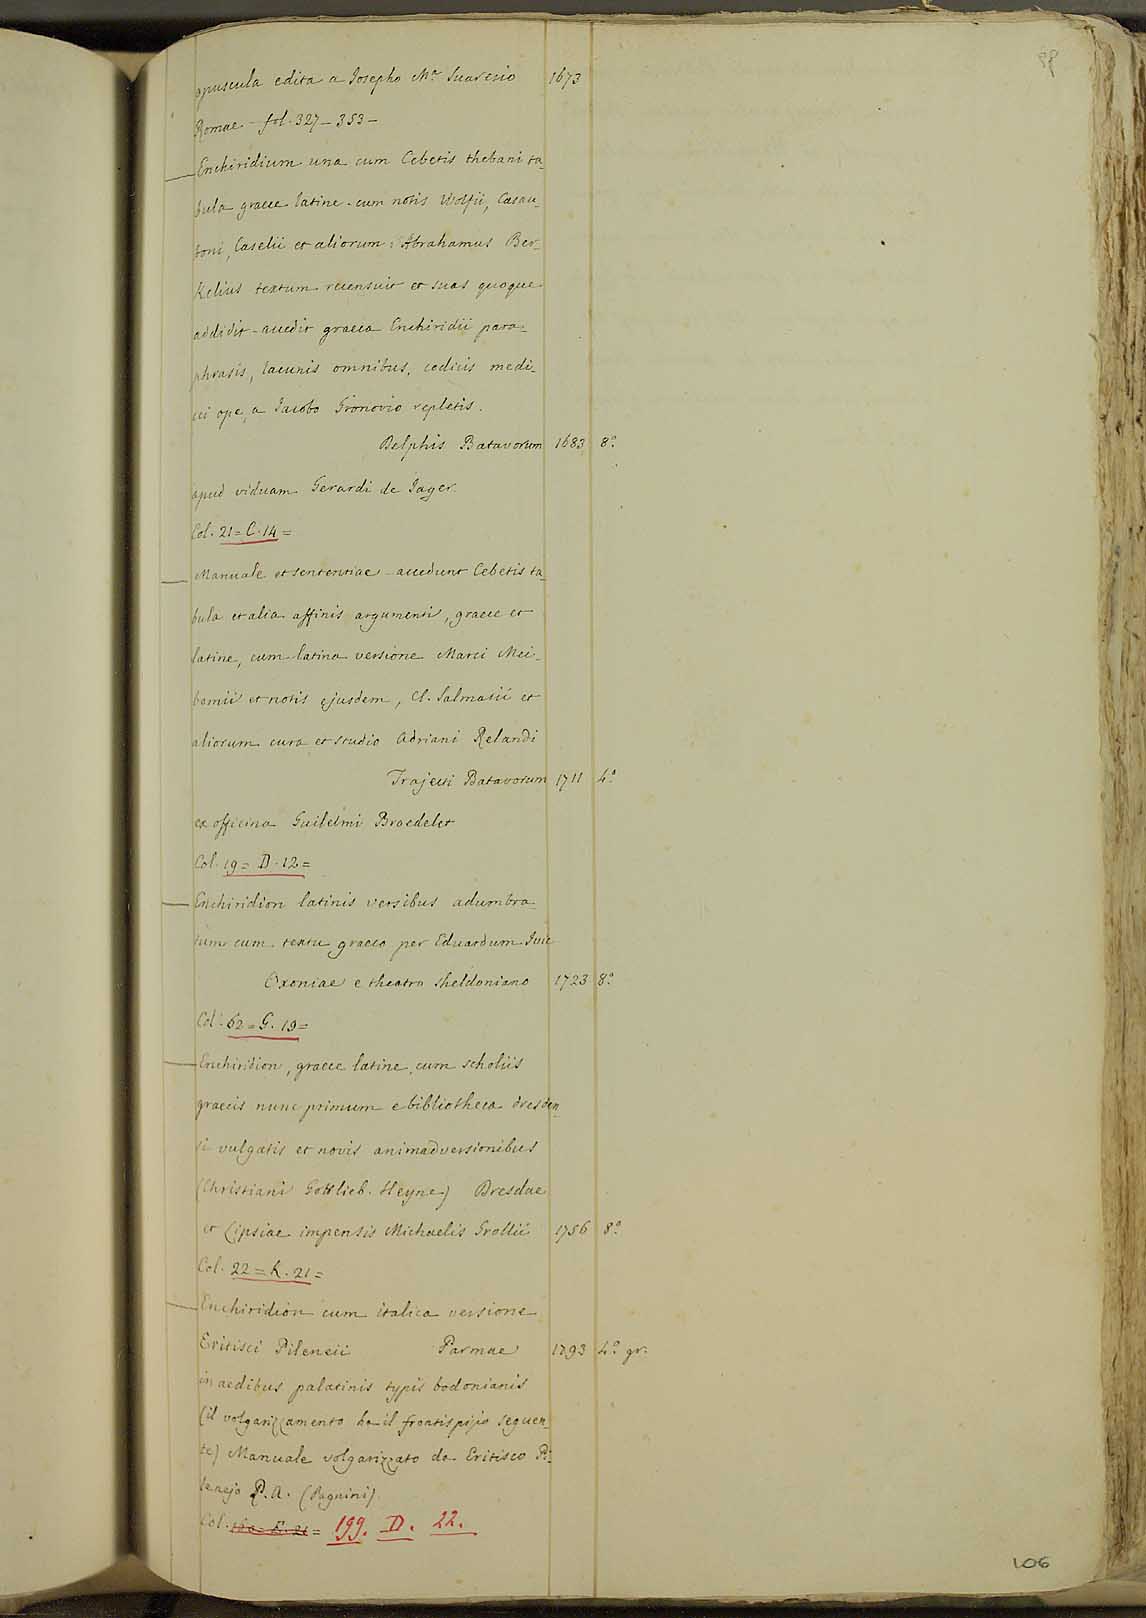 opuscula edita a Josepho Mª Suaresio 1673
Romae - fol. 327 - 353 -
Enchiridium una cum Cebetis thebani ta_
bula graece latine - cum notis Wolfii, Casau_
boni, Caselii et aliorum: Abrahamus Ber_
kelius textum recensuit et suas quoque
addidit - accedit graeca Enchiridii para_
phrasis, lacunis omnibus, codicis medi_
cei ope, a Jacobo Gronovio repletis.
Delphis Batavorum 1683 8º
apud viduam Gerardi de Jager.
Col. 21 = C. 14 =
Manuale et sententiae - accedunt Cebetis ta_
bula et alia affinis argumenti, graece et
latine, cum latina versione Marci Mei_
bomii et notis ejusdem, Cl. Salmasii et
aliorum cura et studio Adriani Relandi
Trajecti Batavorum 1711 4º
ex officina Guilelmi Broedelet
Col. 19 = D. 12 =
Enchiridion latinis versibus adumbra_
tum cum textu graeco per Eduardum Ivie
Oxoniae e theatro sheldoniano 1723 8º
Col. 62 = G. 19 =
Enchiridion, graece latine, cum scholiis
graecis nunc primum e bibliotheca dresden_
si vulgatis et novis animadversionibus
(Christiani Gottlieb. Heyne) Dresdae
et Lipsiae impensis Michaelis Grollii 1756 8º
Col. 22 = K. 21 =
Enchiridion cum italica versione
Eritisci Pileneii Parmae 1793 4º gr.
in aedibus palatinis typis bodonianis
(il volgarizzamento ha il frontispizio seguen_
te) Manuale volgarizzato da Eritisco Pi_
lenejo P. A. (Pagnini)
Col. = 199. D. 22.
106